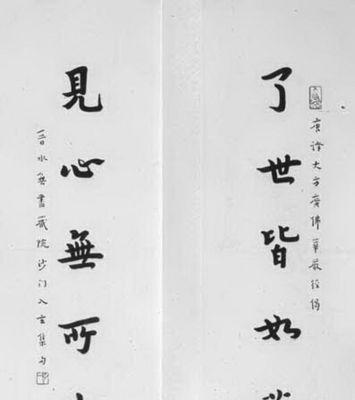 唐譯大方廣佛華嚴經偈
了世皆如
見心無所
晉水書藏院沙门入玄集句